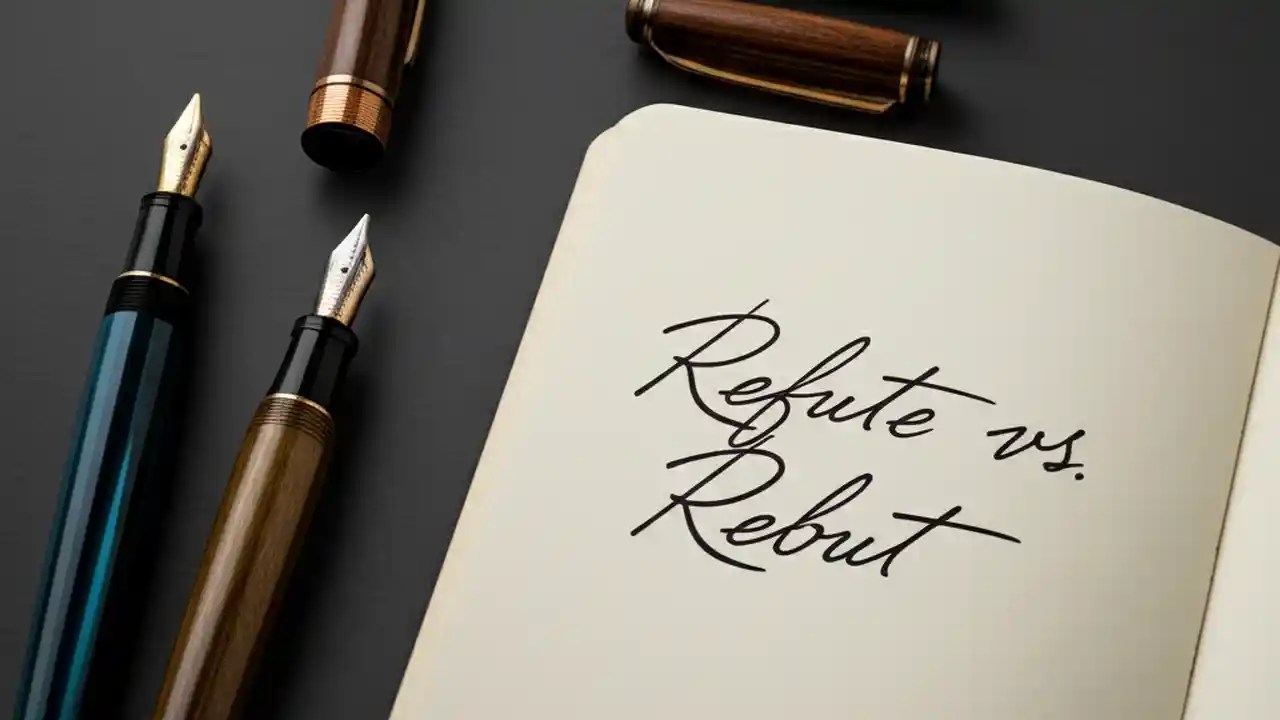 Refute vs.
Rebut